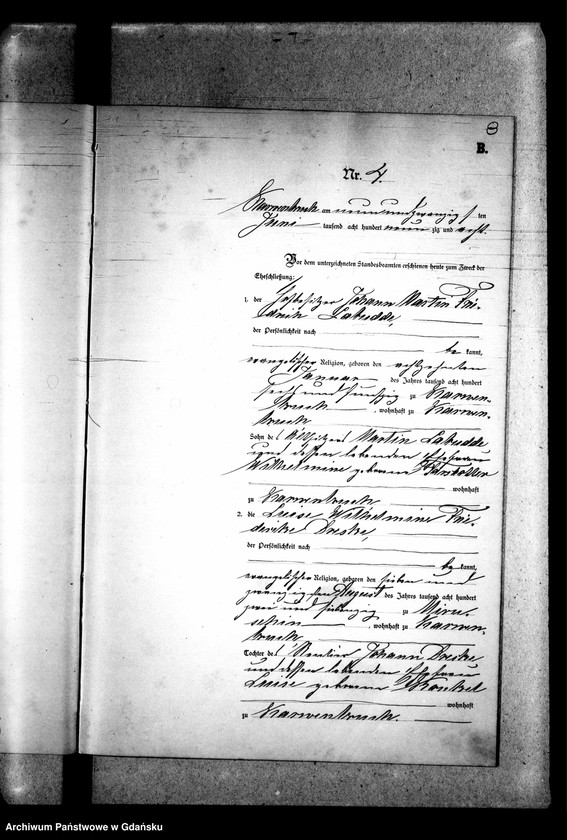 8
B.
Nr. 4.
Karwenbruch am neunundzwanzigsten
Juni tausend acht hundert neunzig und acht.
Vor dem unterzeichneten Standesbeamten erschienen heute zum Zweck der
Eheschließung:
1. der Hofbesitzer Johann Martin Frie-
drich Lakudde,
der Persönlichkeit nach
be kannt,
evangelischer Religion, geboren den achtzehnten
Januar des Jahres tausend acht hundert
sechs und sechszig zu Karwen-
bruch, wohnhaft zu Karwen-
bruch
Sohn des Martin Lakudde
und dessen lebenden Ehefrau
Wilhelmine geborene
wohnhaft
zu Karwenbruch
2. die Luise Wilhelmine Frie-
derike Dreske,
der Persönlichkeit nach
be kannt,
evangelischer Religion, geboren den sieben und
zwanzigsten August des Jahres tausend acht hundert
zwei und siebenzig zu Miru-
schin, wohnhaft zu Karwen-
bruch
Tochter des Rentier Johann Dreske
und dessen lebenden Ehefrau
Luise geborene
wohnhaft
zu Karwenbruch.
Archiwum Państwowe w Gdańsku